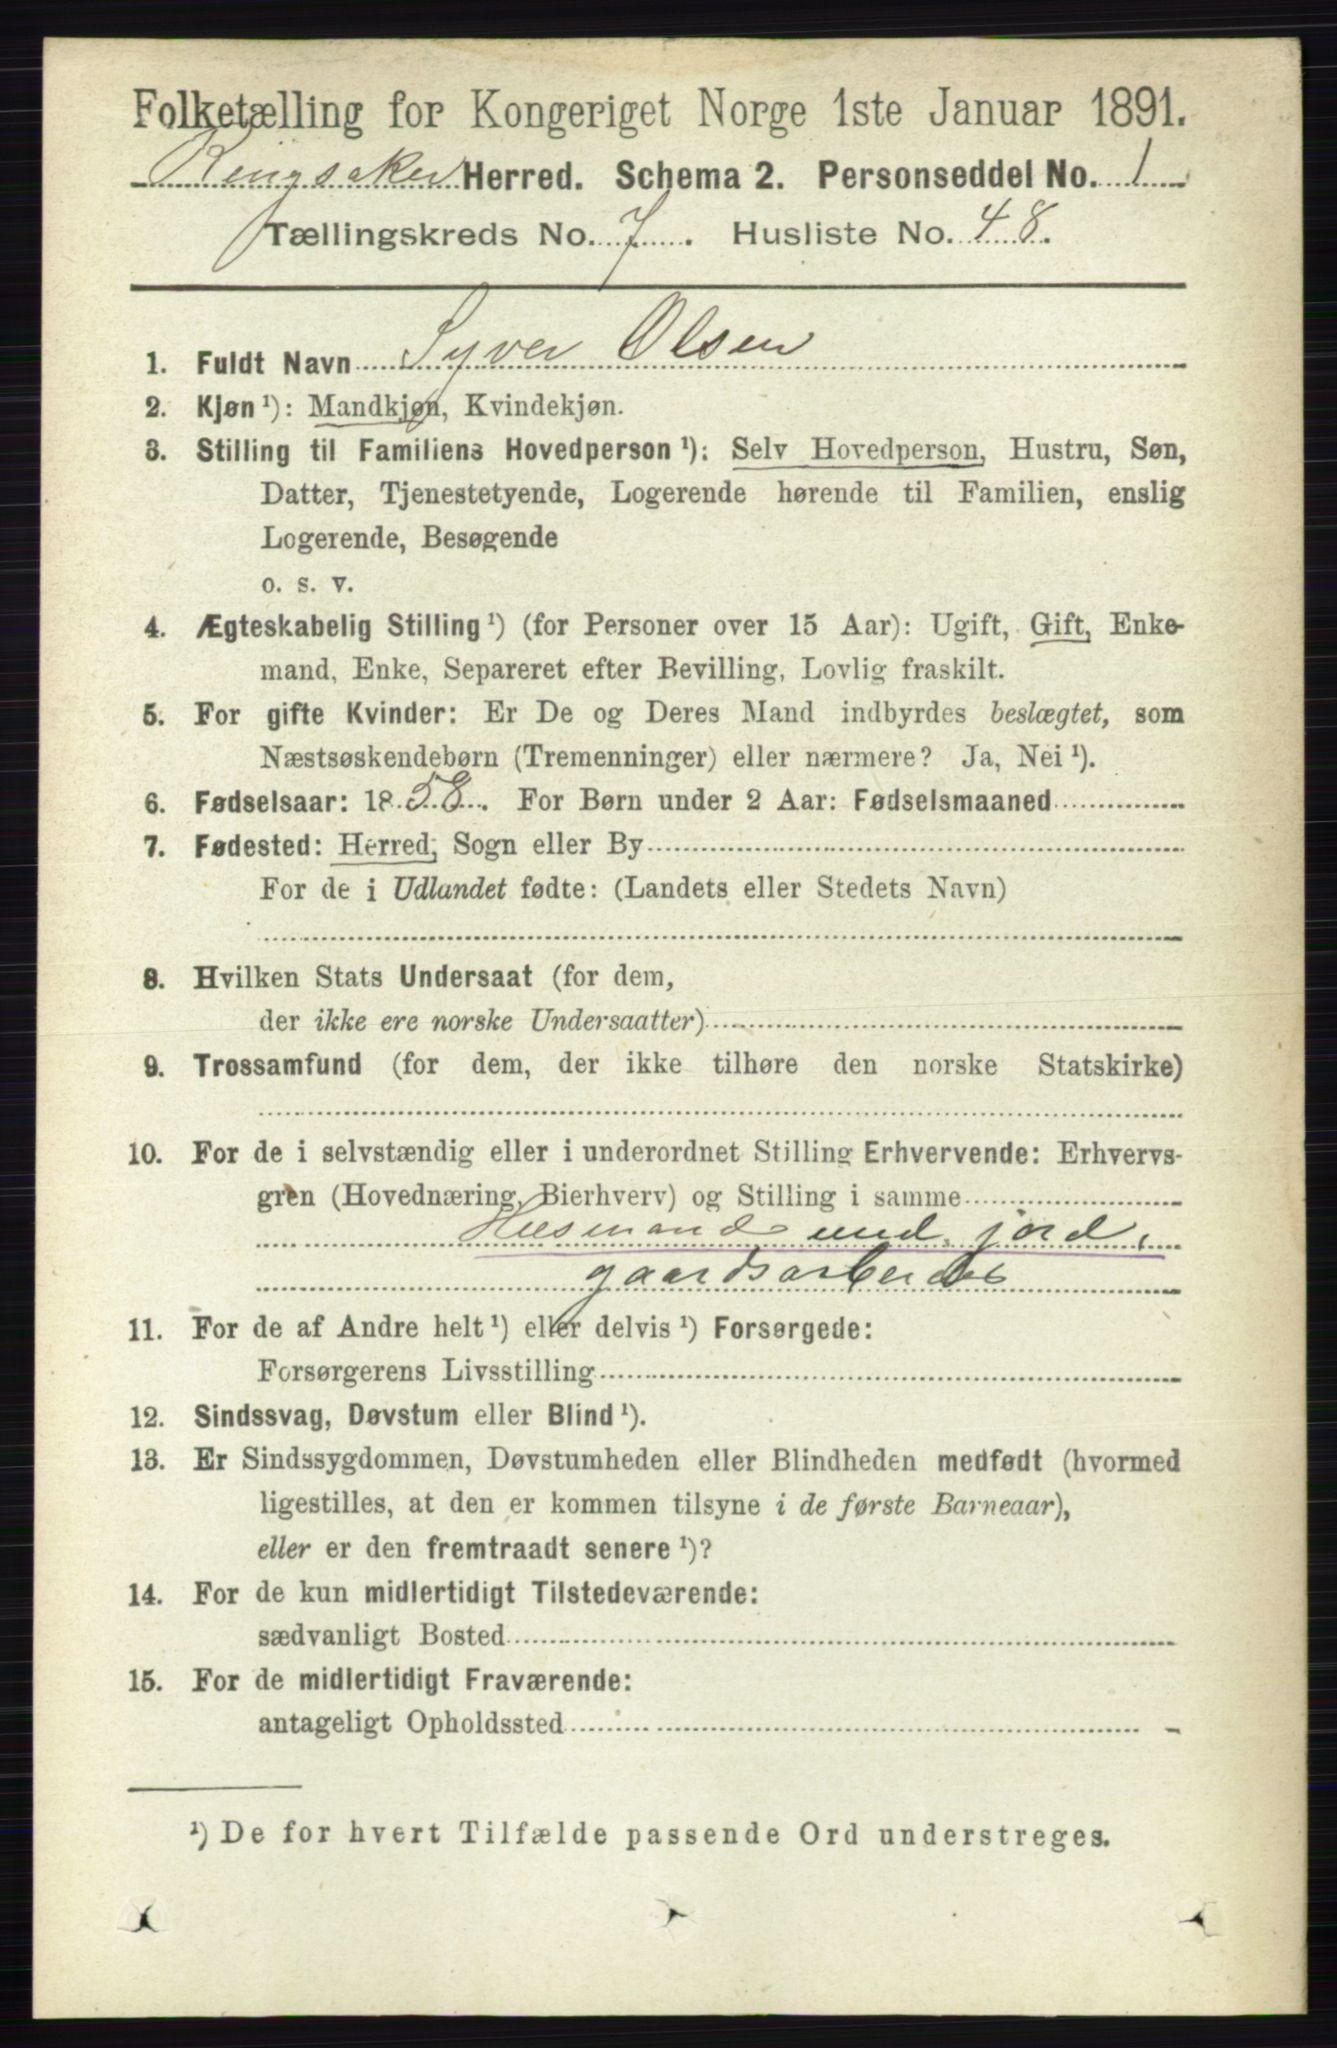 Folketælling for Kongeriget Norge 1ste Januar 1891.
Ringsaker Herred. Schema 2. Personseddel No. 1
Tællingskreds No. 7. Husliste No. 48.
1. Fuldt Navn Syver Olsen
2. Kjøn ¹): Mandkjøn, Kvindekjøn.
3. Stilling til Familiens Hovedperson ¹): Selv Hovedperson, Hustru, Søn,
Datter, Tjenestetyende, Logerende hørende til Familien, enslig
Logerende, Besøgende
o. s. v.
4. Ægteskabelig Stilling ¹) (for Personer over 15 Aar): Ugift, Gift, Enke-
mand, Enke, Separeret efter Bevilling, Lovlig fraskilt.
5. For gifte Kvinder: Er De og Deres Mand indbyrdes beslægtet, som
Næstsøskendebørn (Tremenninger) eller nærmere? Ja, Nei ¹).
6. Fødselsaar: 1858. For Børn under 2 Aar: Fødselsmaaned
7. Fødested: Herred, Sogn eller By
For de i Udlandet fødte: (Landets eller Stedets Navn)
8. Hvilken Stats Undersaat (for dem,
der ikke ere norske Undersaatter)
9. Trossamfund (for dem, der ikke tilhøre den norske Statskirke)
10. For de i selvstændig eller i underordnet Stilling Erhvervende: Erhvervs-
gren (Hovednæring, Bierhverv) og Stilling i samme
Husmand med jord,
gaardsarbeider
11. For de af Andre helt ¹) eller delvis ¹) Forsørgede:
Forsørgerens Livsstilling
12. Sindssvag, Døvstum eller Blind ¹).
13. Er Sindssygdommen, Døvstumheden eller Blindheden medfødt (hvormed
ligestilles, at den er kommen tilsyne i de første Barneaar),
eller er den fremtraadt senere ¹)?
14. For de kun midlertidigt Tilstedeværende:
sædvanligt Bosted
15. For de midlertidigt Fraværende:
antageligt Opholdssted
¹) De for hvert Tilfælde passende Ord understreges.